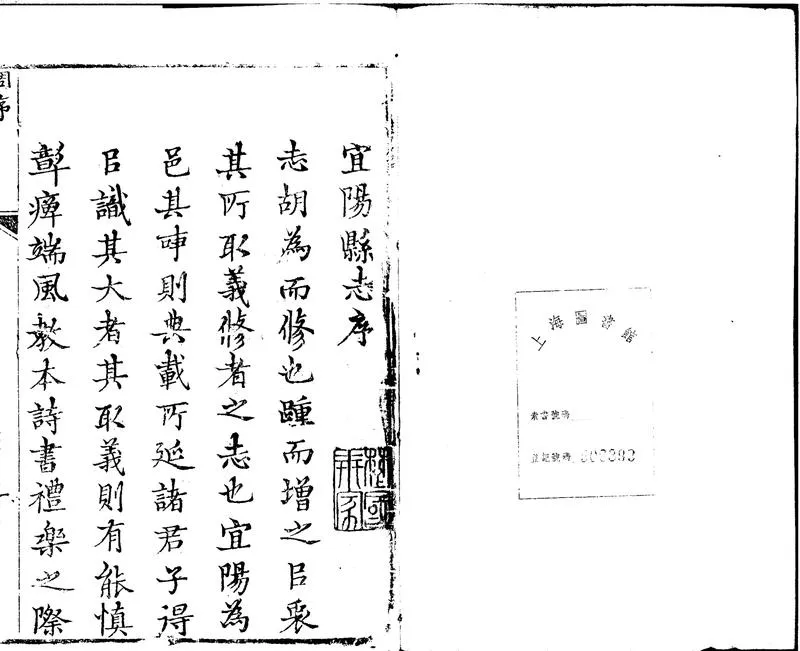 索書號碼
登記號碼
宜陽縣志序
志胡為而修也踵而增之㠯
其所取義修者之志也宜陽為
邑其則典載所延諸君子得
㠯識其大者其取義則有能慎
彰癉端風教本詩書禮樂之際
周序